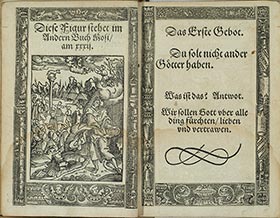 Diese Figur stehet im
Andern Buch Mosi/
am xxxij.
Das Erste Gebot.
Du solt nicht ander
Götter haben.
Was ist das? Antwot.
Wir sollen Gott vber alle
ding fürchten/lieben
vnd vertrawen.